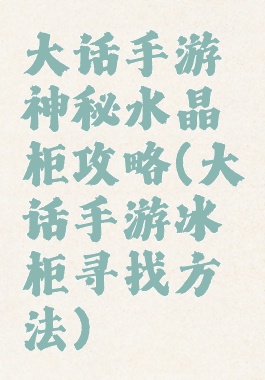 大话手游
神秘水晶
柜攻略(大
话手游冰
柜寻找方
法)